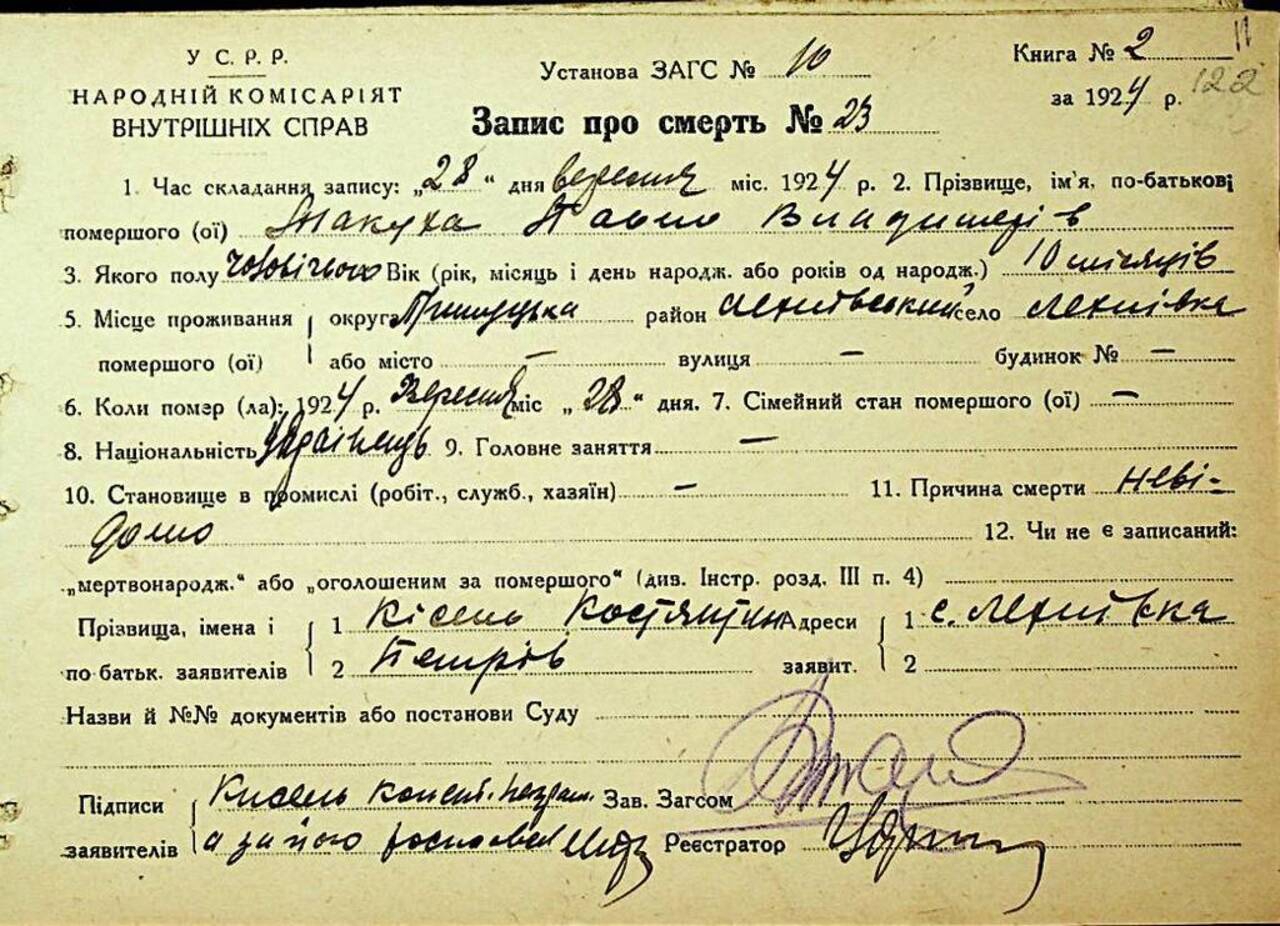 У С. Р. Р.
НАРОДНІЙ КОМІСАРІЯТ
ВНУТРІШНІХ СПРАВ
Установа ЗАГС № 10
Книга № 2
11
за 1924 р.
122
Запис про смерть № 23
1. Час складання запису: „28“ дня вересня міс. 1924 р. 2. Прізвище, ім'я, по-батькові
помершого (ої) Макуха Павло Владимерів
3. Якого полу чоловічого Вік (рік, місяць і день народж. або років од народж.) 10 місяців
5. Місце проживання округ Прилуцька район Лехнівський село Лехнівка
помершого (ої) або місто — вулиця — будинок № —
6. Коли помэр (ла): 1924 р. Вересня міс „28“ дня. 7. Сімейний стан помершого (ої) —
8. Національність Українець 9. Головне заняття —
10. Становище в промислі (робіт., служб., хазяїн) — 11. Причина смерти неві-
домо 12. Чи не є записаний:
„мертвонародж.“ або „оголошеним за помершого“ (див. Інстр. розд. III п. 4)
Прізвища, імена і 1 Кісель Костянтин Адреси 1 с. Лехнівка
по батьк. заявителів 2 Петрів заявит. 2
Назви й №№ документів або постанови Суду
Підписи Кисель Конст. Зав. Загсом
заявителів а за його Реєстратор